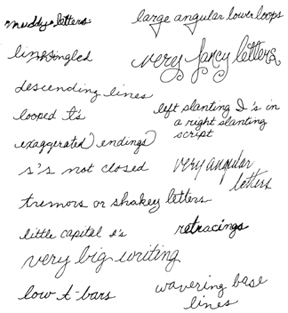 muddy letters
large angular lower loops
very fancy letters
descending lines
looped t's
left slanting I's in
a right slanting
script
exaggerated endings
s's not closed
very angular
letters
tremors or shakey letters
little capital s's
retracings
very big writing
low t-bars
wavering base
lines